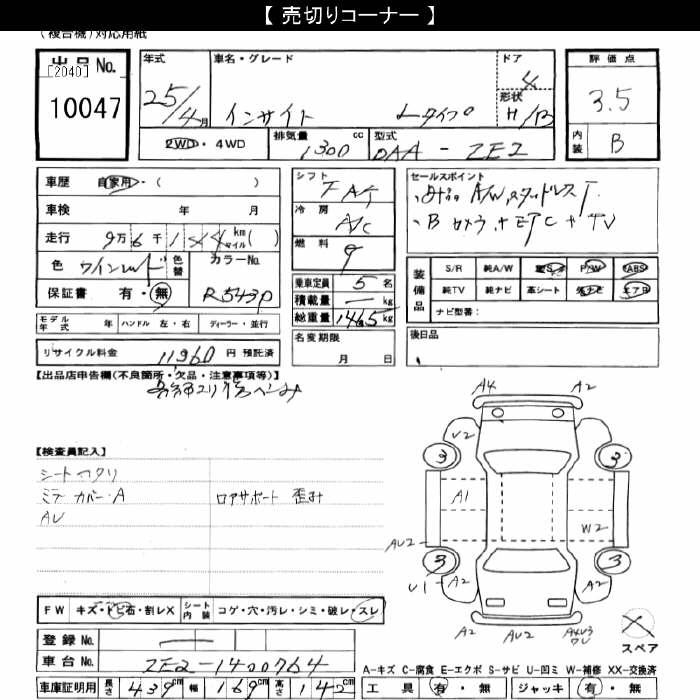 【 売切りコーナー 】
(複合機)対応用紙
出品No.
[2040]
10047
年式
25/4月
車名・グレード
インサイト Lタイプ
ドア
4
形状
H/B
評価点
3.5
内装
B
2WD・4WD
排気量 cc
1300
型式
DAA - ZE2
車歴 自家用・( )
車検 年 月
走行 9万6千1 km マイル ( )
色 ワインレッド 色替
カラーNo.
R543P
保証書 有・無
シフト
FAT
冷房
A/C
燃料
乗車定員 5 名
積載量 — kg
総重量 1465 kg
セールスポイント
A/W,スタッドレスT.
・Bカメラ + ETC + TV
装備品
S/R 純A/W 革S P/W ABS
純TV 純ナビ 革シート エアB
ナビ型番:
モデル年式 年 ハンドル 左・右 ディーラー・並行
リサイクル料金 11960 円 預託済
名変期限
月 日
後日品
【出品店申告欄(不良箇所・欠品・注意事項等)】
【検査員記入】
シートヘタリ
ミラーカバー・A ロアサポート 歪み
AU
A4 A2
U2
3 3
A1
W2
AU2
3 3
U1 A2 A2
A2 AU2 A4U3
スペア
FW キズ・トビ石・割レX シート内装 コゲ・穴・汚レ・シミ・破レ・スレ
登録No. —
車台No. ZE2-1400764
車庫証明用 長さ 439 cm 幅 169 cm 高さ 142 cm
A-キズ C-腐食 E-エクボ S-サビ U-凹ミ W-補修 XX-交換済
工具 有・無 ジャッキ 有・無